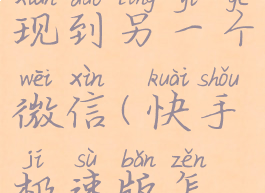 xiàn dào lìng yí gè
现到另一个
wēi xìn kuài shǒu
微信(快手
jí sù bǎn zěn
极速版怎